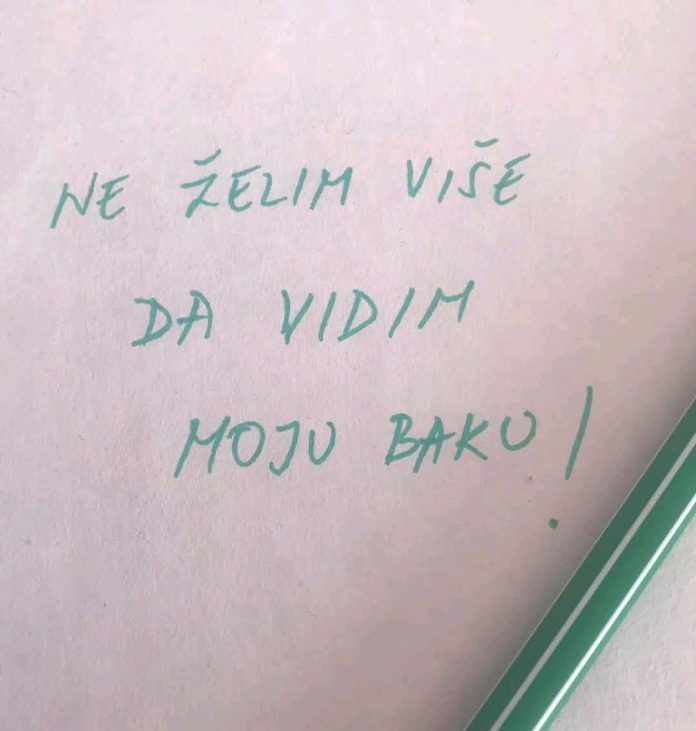 NE ŽELIM VIŠE
DA VIDIM
MOJU BAKU!